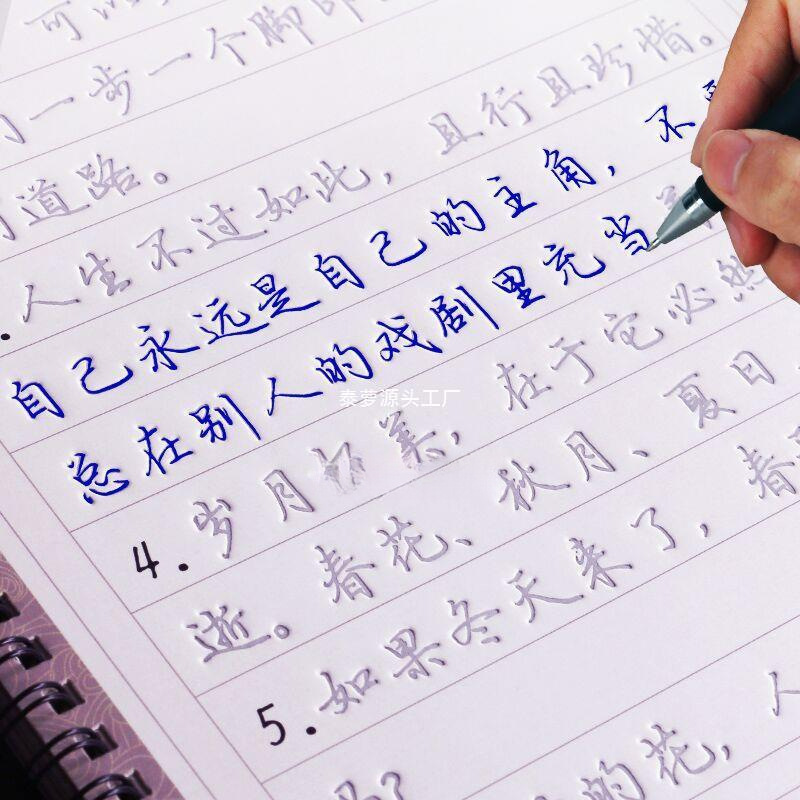 可以
一步一个脚印
道路。
且行且珍惜。
人生不过如此，
自己永远是自己的主角，不
总在别人的戏剧里充当
4.岁月 美，在于它必然
逝。春花、秋月、夏日、
5.如果冬天来了，春
的花，人
吗？
泰萝源头工厂